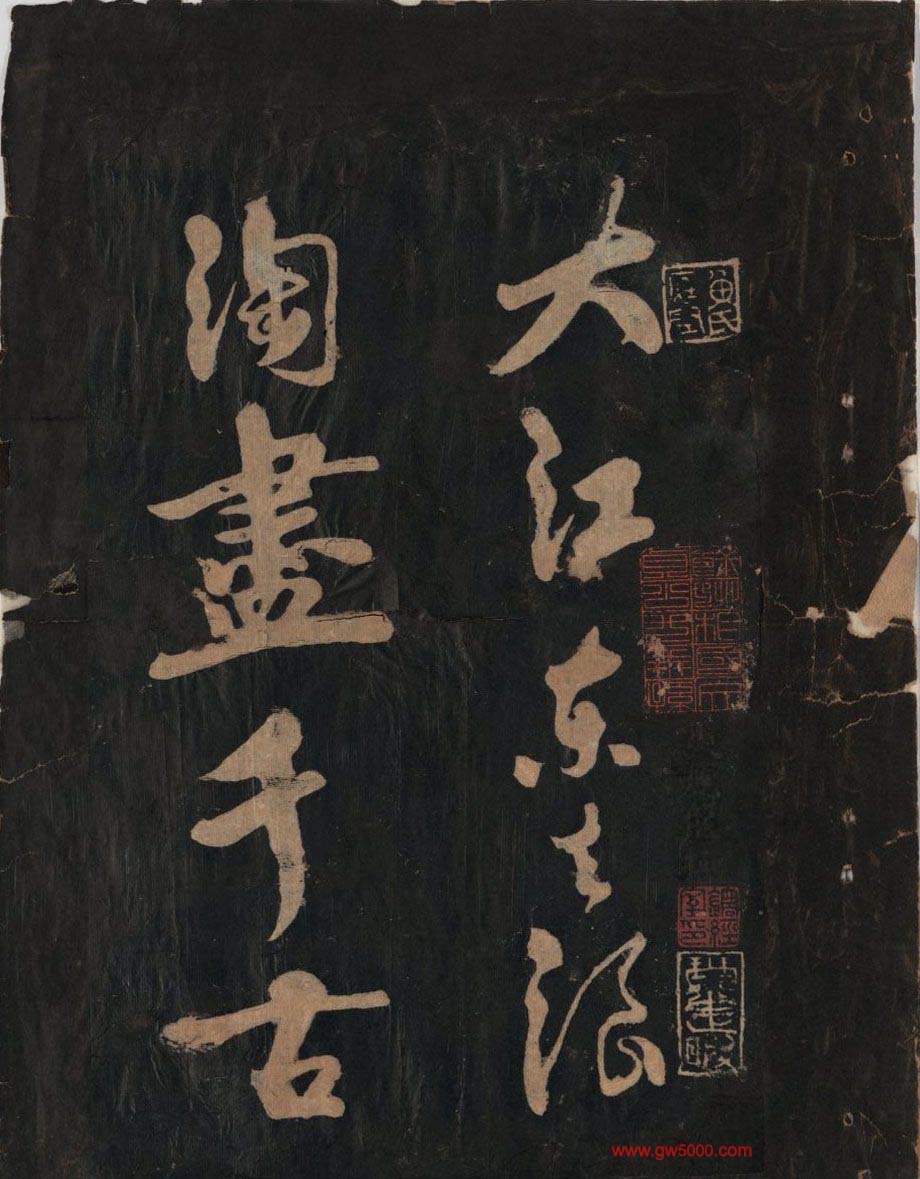 大江东去浪
淘盡千古
www.gw5000.com